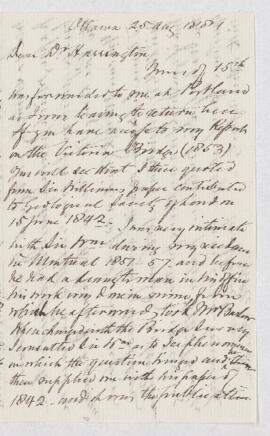 Ottawa 25 Aug 1881
Dear Dr Harrington
Yours of 15th
was forwarded to me at Portland
as I was leaving to return here
If you have access to my Report
on the Victoria Bridge (1853)
you will see that I there quoted
from Sir William's paper contributed
to Geological Society of London
15 June 1842. I was very intimate
with Sir Wm during my residence
in Montreal 1851-57 and before
he had a draughtsman in his office
his work my
what he afterward took Mr Barlow
When charged with the Bridge I was very
Wm as to Ice phenomena
in which the question hinged and he then
then supplied me with his paper of
1842 and it was the publication